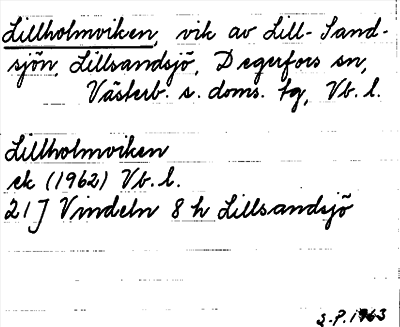 Lillholmviken, vik av Lill-Sand-
sjön, Lillsandsjö, Degerfors sn,
Västerb. s. doms. tg, Vb. l.
Lillholmviken
ek (1962) Vb. l.
21J Vindeln 8 h Lillsandsjö
S.P. 1963